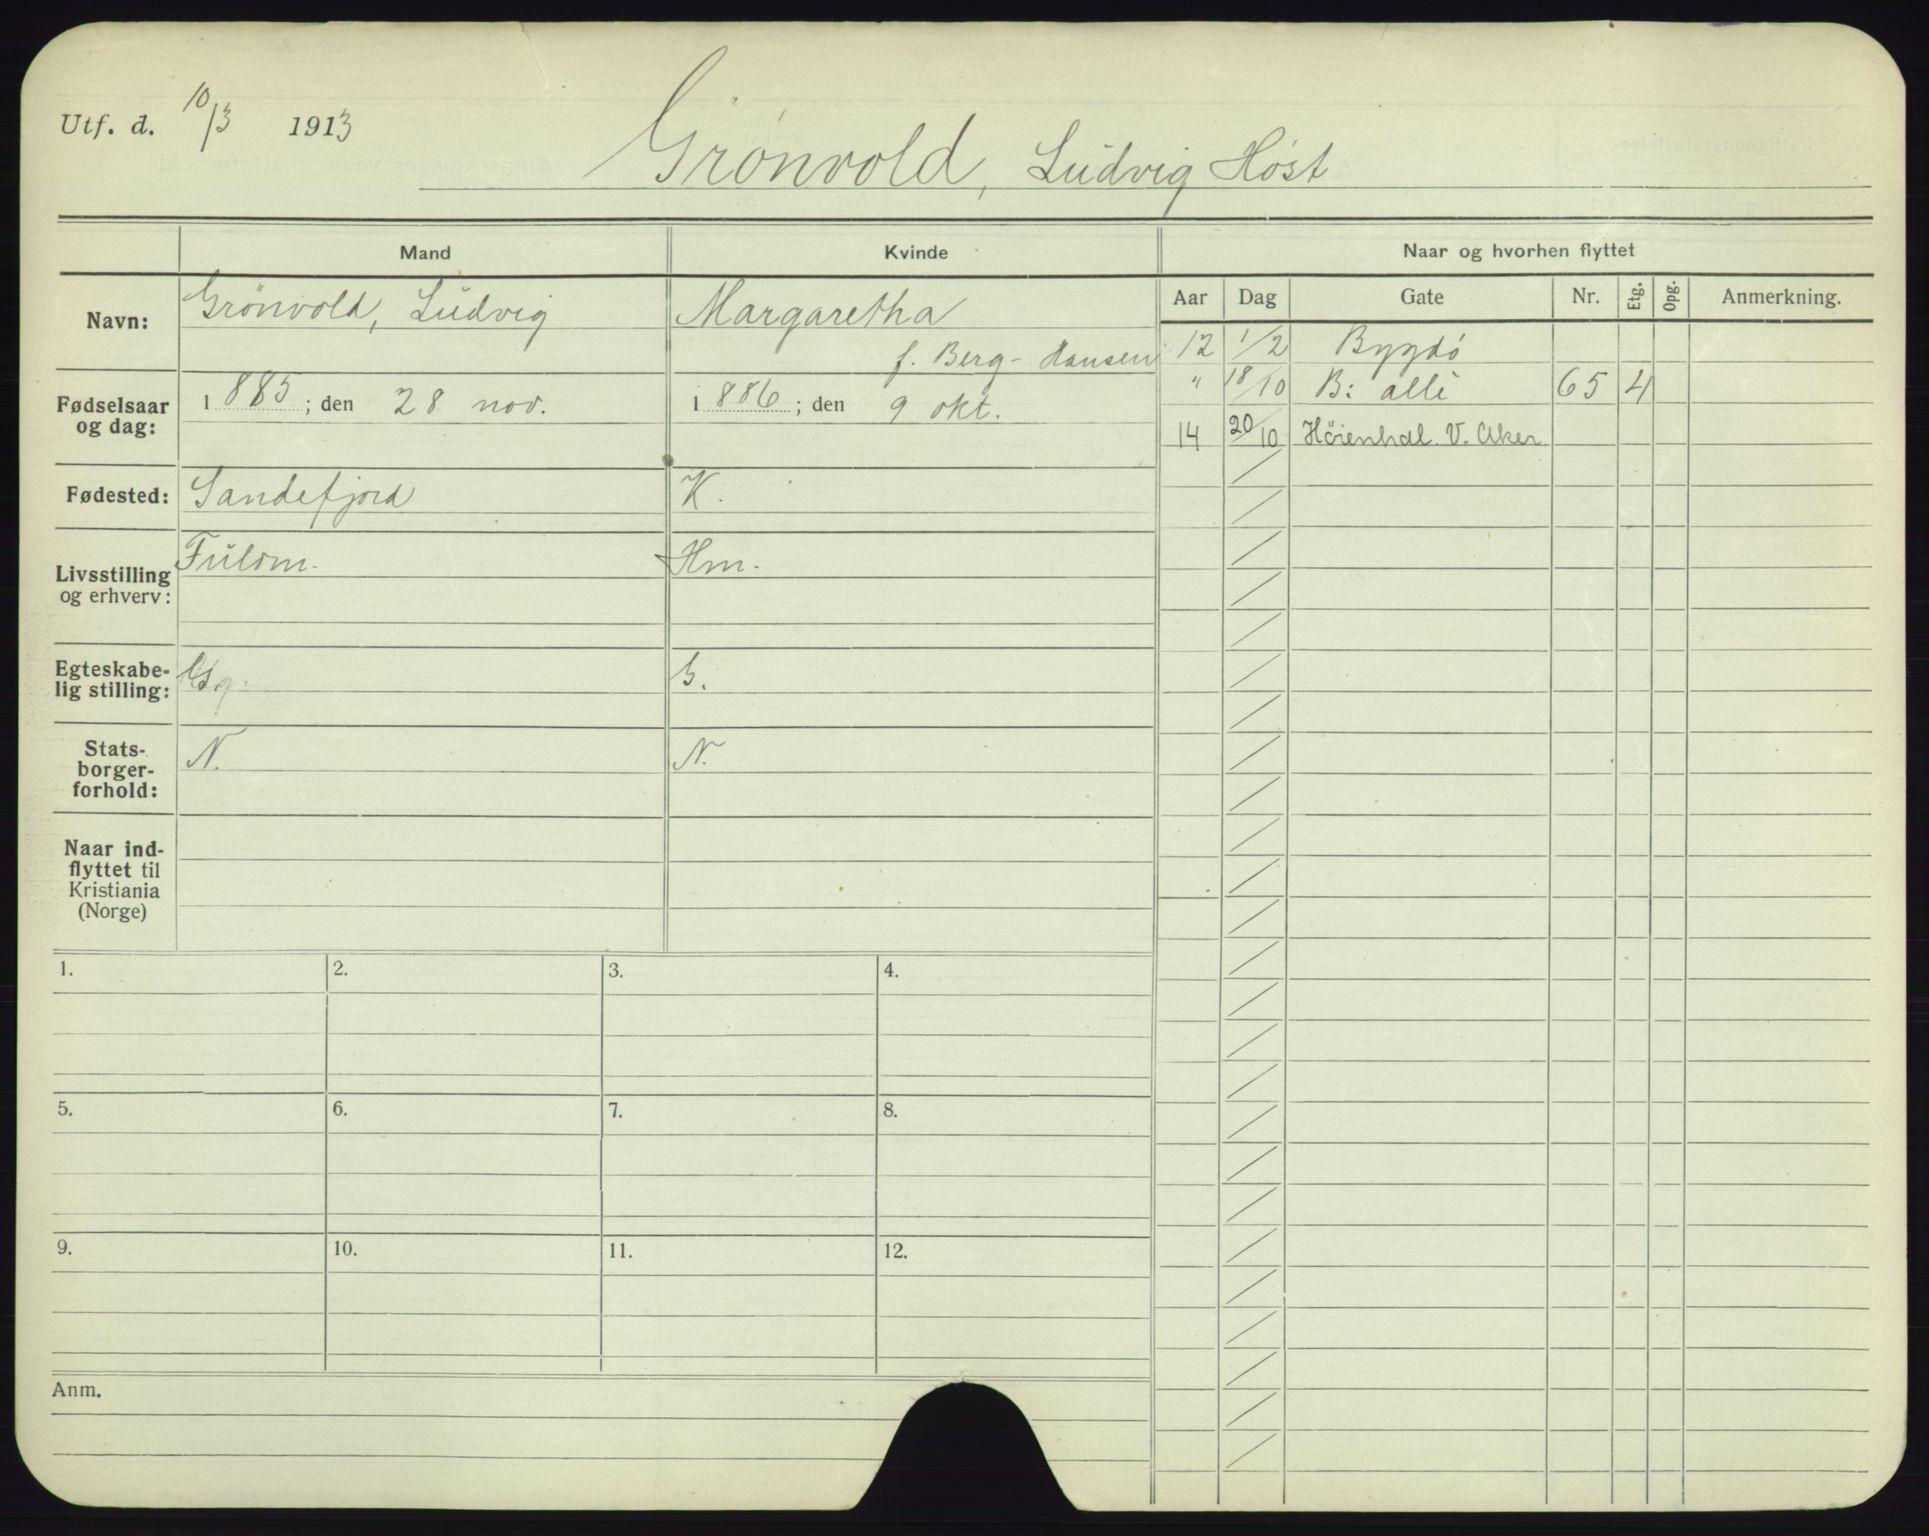 Utf. d. 10/3 1913
Grönvold, Ludvig Höst
Mand Kvinde Naar og hvorhen flyttet
Navn: Grönvold, Ludvig Margaretha
f. Berg-Hansen
Fødselsaar og dag: i 885 ; den 28 nov. i 886 ; den 9 okt.
Fødested: Sandefjord K.
Livsstilling og erhverv: Fuldm. Hm.
Egteskabe-
lig stilling: G.
Stats-
borger-
forhold: N. N.
Naar ind-
flyttet til
Kristiania
(Norge)
Aar Dag Gate Nr. Etg. Opg. Anmerkning.
12 1/2 Bygdö
" 18/10 B: allé 65 4
14 20/10 Höienhal. V. Aker
1. 2. 3. 4.
5. 6. 7. 8.
9. 10. 11. 12.
Anm.